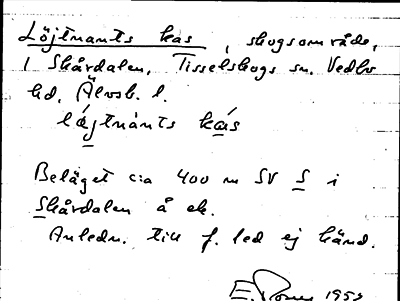 Löjtnants kas, skogsområde,
i Skårdalen, Tisselskogs sn. Vedbo
hd, Älvsb. l.
lájtnànts kás
Beläget c:a 400 m SV S i
Skårdalen å ek.
Anledn. till f. led ej känd.
E. 195